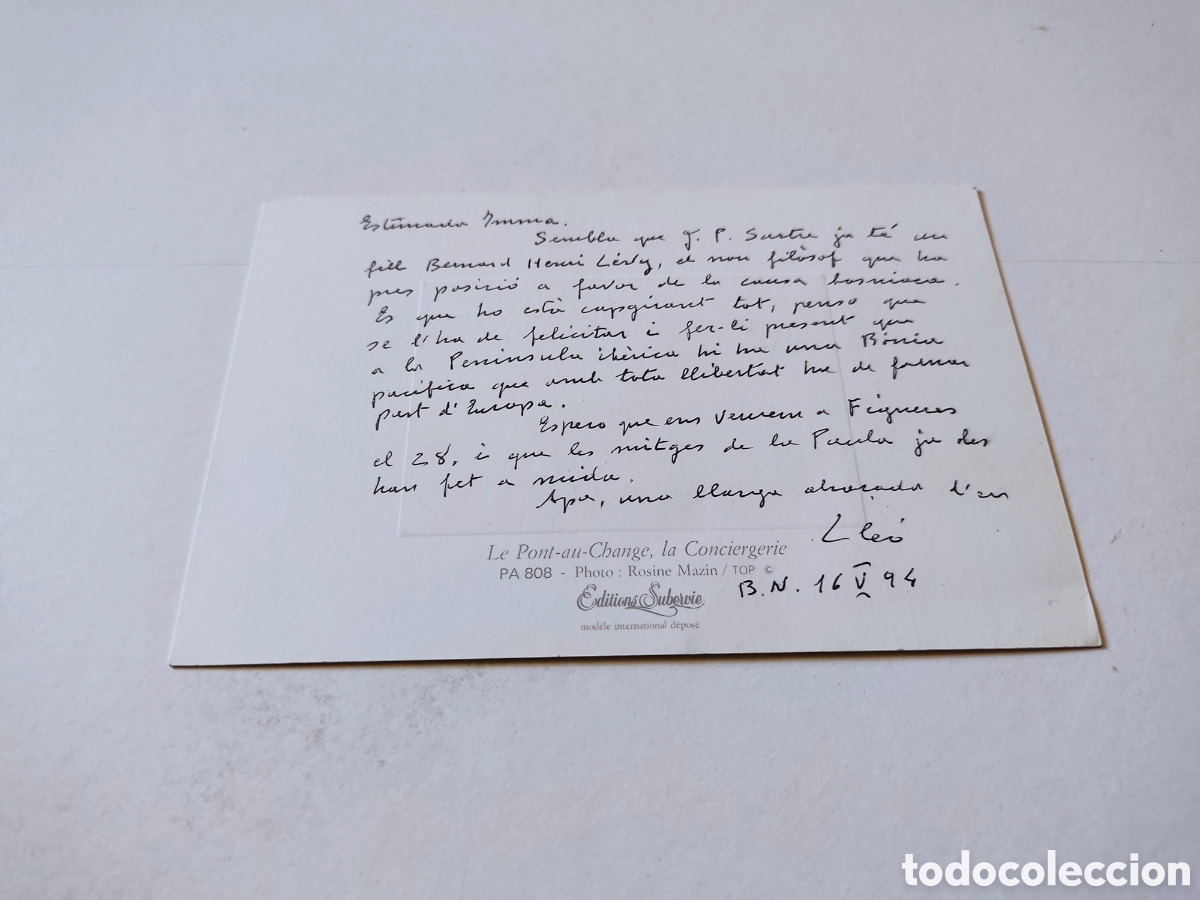 Estimada Imma.
Sembla que J. P. Sartre ja té un
fill Bernard Henri Lévy, el nou filòsof que ha
pres posició a favor de la causa bosníaca.
Es que ho està capgirant tot, penso que
se l'ha de felicitar i fer-li present que
a la Península ibèrica hi ha una Bònia
pacífica que amb tota llibertat ha de formar
part d'Europa.
Espero que ens veurem a Figueres
el 28, i que les mitges de la Paula ja les
han fet a mida.
Apa, una llarga abraçada d'en
Lleó
Le Pont-au-Change, la Conciergerie
PA 808 - Photo : Rosine Mazin / TOP ©
B.N. 16 V 94
Editions Subervie
modèle international déposé
todocoleccion